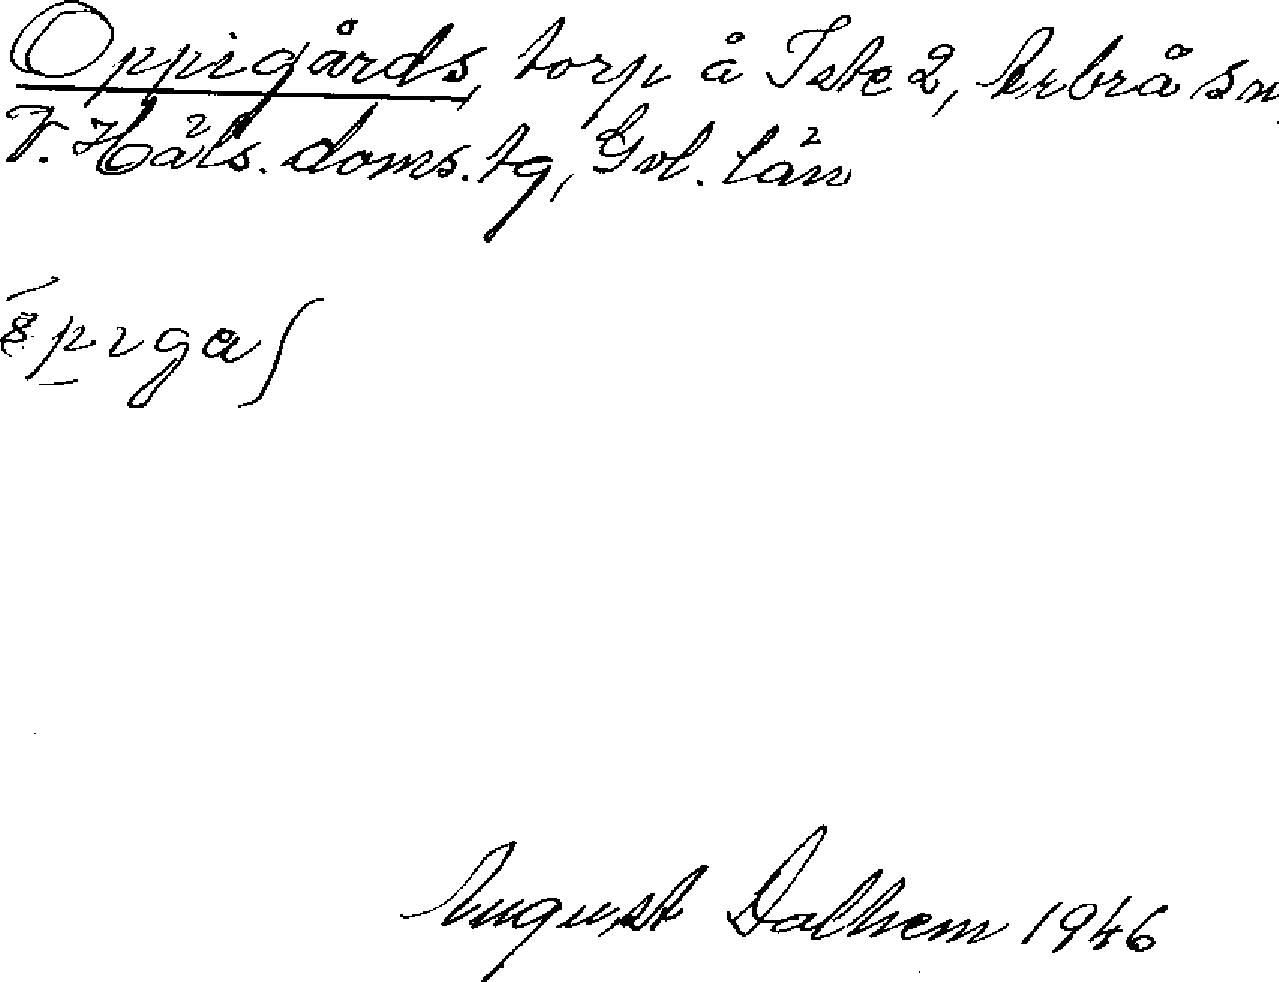 Oppigårds, torp å Iste 2, Arbrå sn,
V. Häls. doms. tg, Gvl. län
August Dalhem 1946